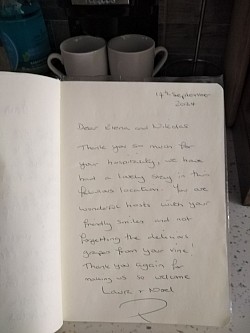 17th September
2024
Dear and
Thank you so much for
your hospitality, we have
had a lovely stay in this
fabulous location. You are
wonderful hosts with your
friendly smiles and not
forgetting the delicious
grapes from your vine!
Thank you again for
making us so welcome
+